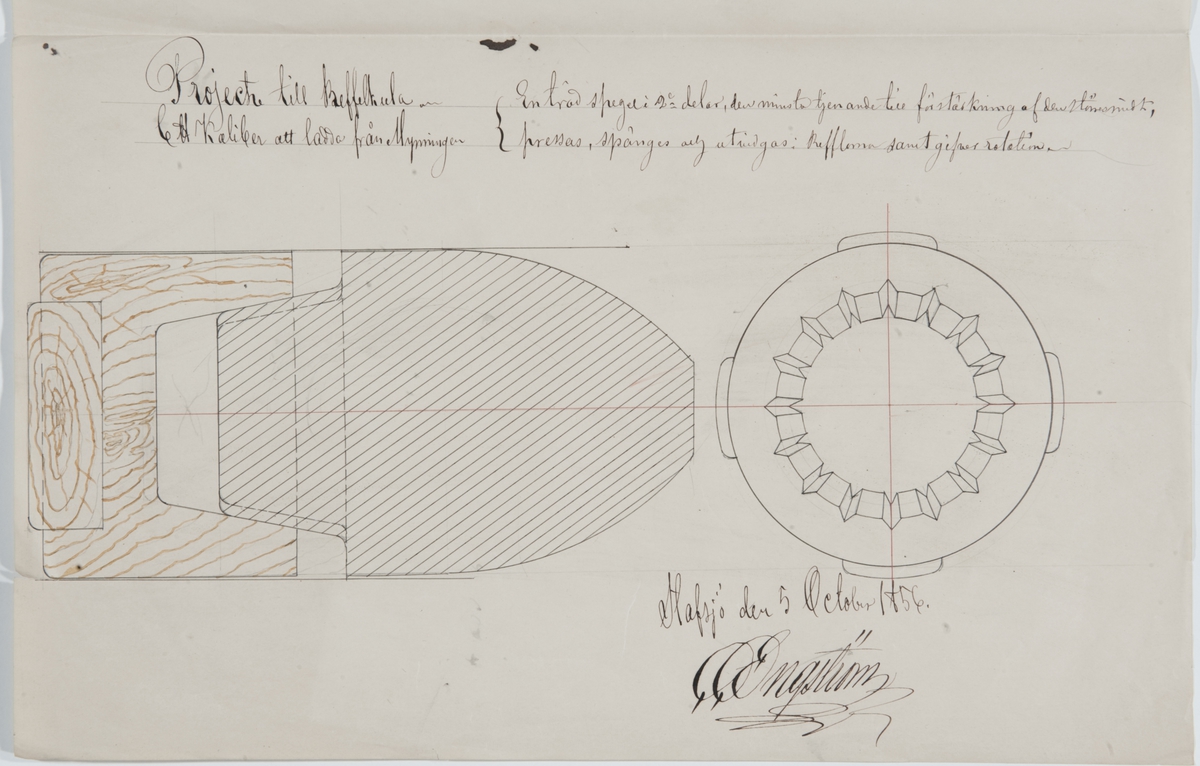 Project till Reffelkula
Kaliber att ladda från Mynningen
En träd spegel i 2ne delar, den minsta tjenande till förstärkning af den
pressas, spänges och utvidgas i Refflorna samt gifver rotation.
Hafsjö den 5 October 1856.
Engström